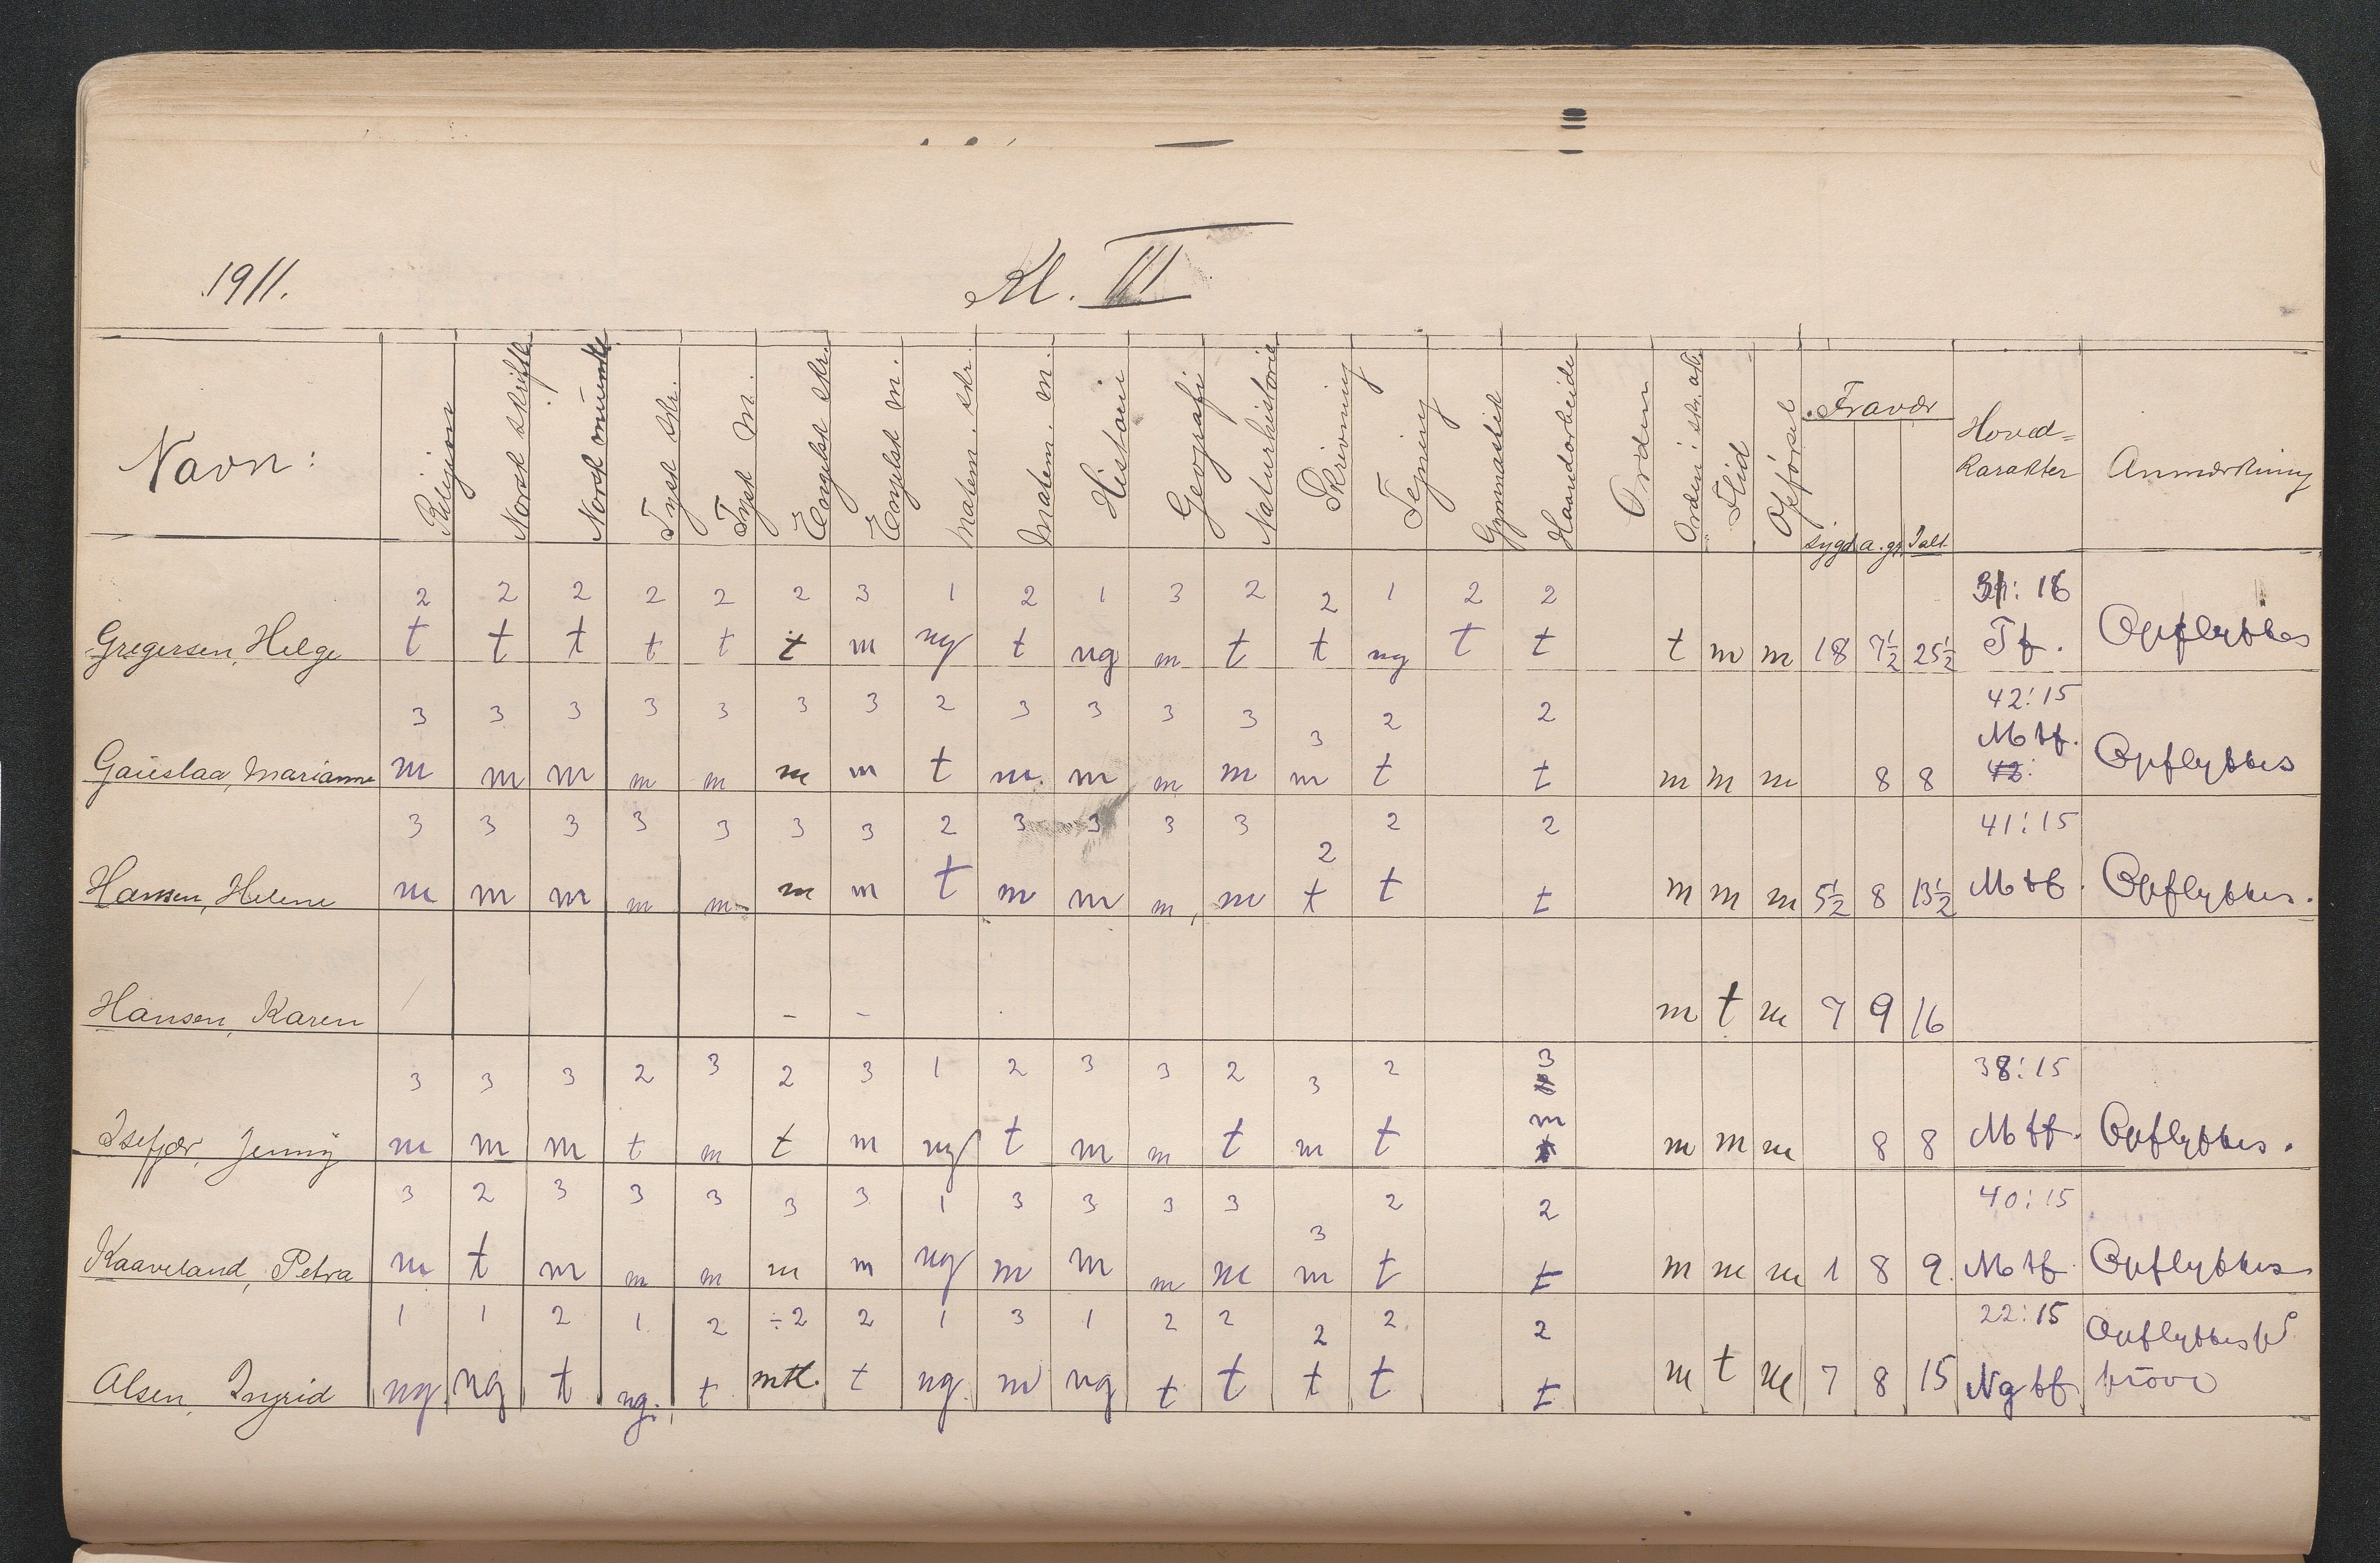 1911. Kl. III
Navn: Religion Norsk skriftl. Norsk mundtl. Tysk skr. Tysk M. Engelsk skr. Engelsk m. Matem. skr. Matem. m. Historie Geografi Naturhistorie Skrivning Tegning Gymnastik Haandarbeide Orden Orden i skr. arb. Flid Opførsel Fravær Hoved= Karakter Anmærkning
sygd. a. gr. Ialt.
2 2 2 2 2 2 3 1 2 1 3 2 2 1 2 2 : 16
Gregersen, Helge t t t t t t m ng t ng m t t ng t t t m m 18 7½ 25½ Tf. Opflyttes
3 3 3 3 3 3 3 2 3 3 3 3 3 2 2 42:15
Gauslaa, Marianne m m m m m m m t m. m m m m t t m m m 8 8 Mtf. Opflyttes
42:
3 3 3 3 3 3 3 2 3 3 3 3 2 2 2 41:15
Hansen, Helene m m m m m m m t m m m m t t t m m m 5½ 8 13½ Mtf. Opflyttes.
Hansen, Karen - - m t m 7 9 16
3 3 3 2 3 2 3 1 2 3 3 2 3 2 3 38:15
Isefjær, Jenny m m m t m t m ng t m m t m t m t m m m 8 8 Mtf. Opflyttes.
3 2 3 3 3 3 3 1 3 3 3 3 3 2 2 40:15
Kaaveland, Petra m t m m m m m ng m m m m m t t m m m 1 8 9. Mtf. Opflyttes
1 1 2 1 2 ÷2 2 1 3 1 2 2 2 2 2 22:15 Opflyttes på
Olsen, Ingrid ng. ng t ng. t mtl. t ng. m ng t t t t t m t m 7 8 15 Ng tf prøve